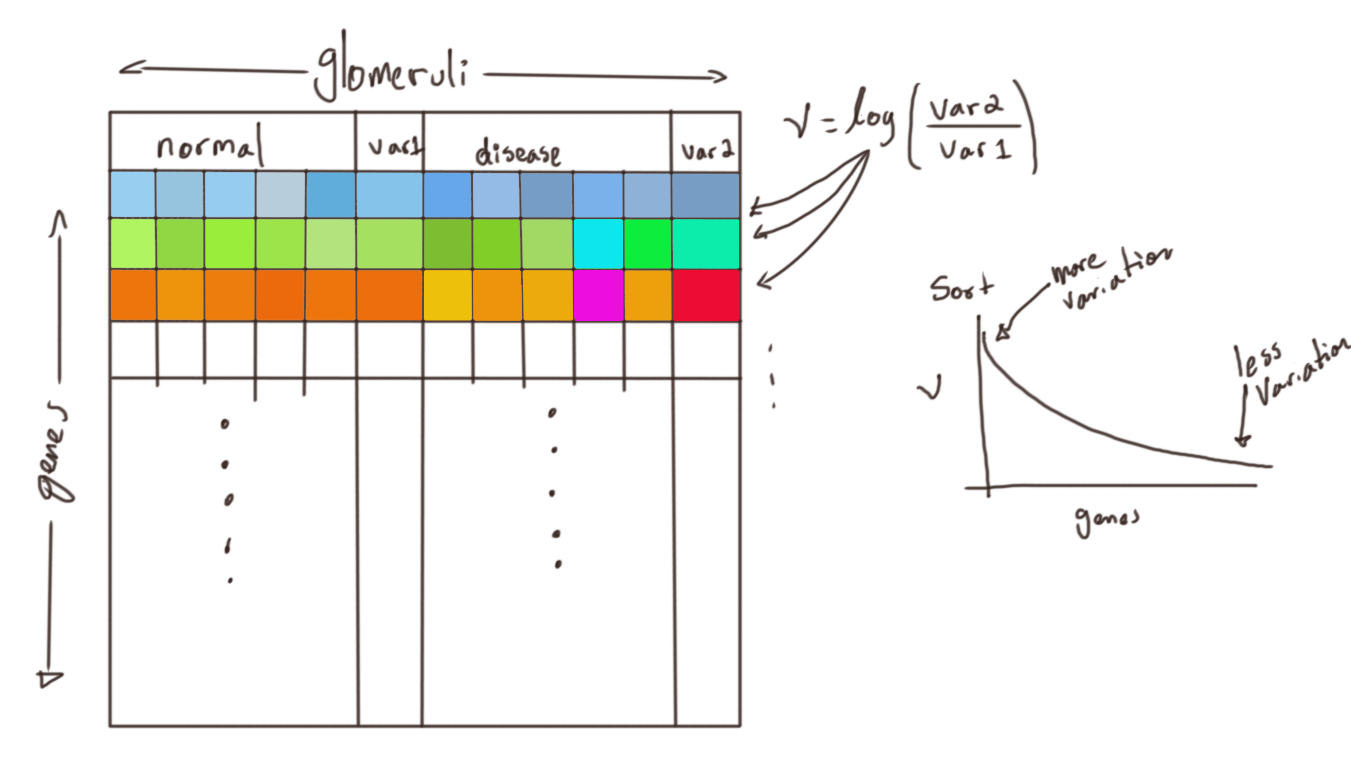 glomeruli
normal var1 disease var2
genes
v = log (var2 / var1)
Sort
more
variation
less
variation
v
genes